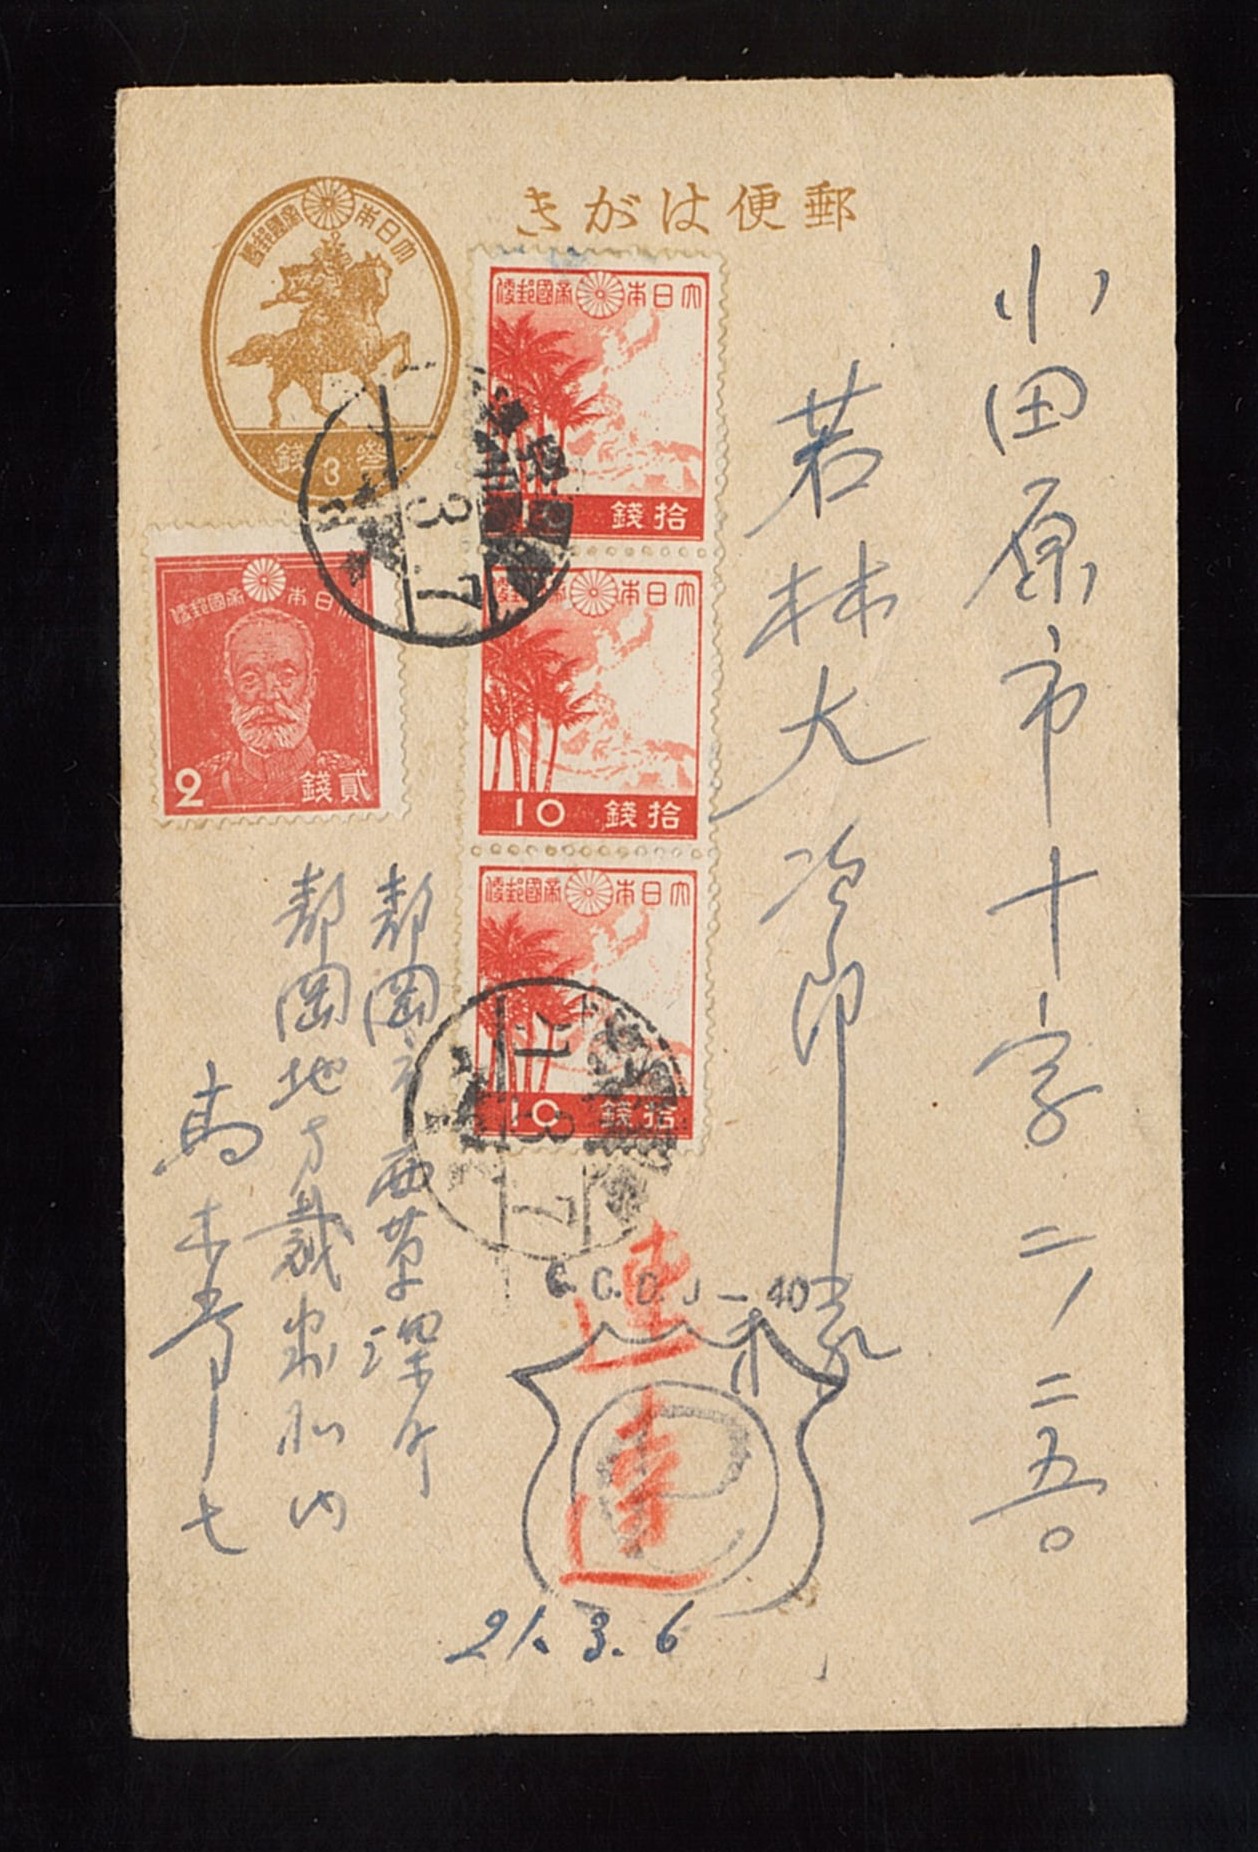 郵便はがき
大日本帝國郵便
3
大日本帝國郵便
拾錢
大日本帝國郵便
10 拾錢
大日本帝國郵便
10 拾錢
大日本帝國郵便
2 貳錢
小田原市十字二ノ二五〇
若林大治郎
静岡市西草深町
静岡地方裁
内
3
7
21
3
7
C.C.D. J-40
P
速達
21. 3. 6